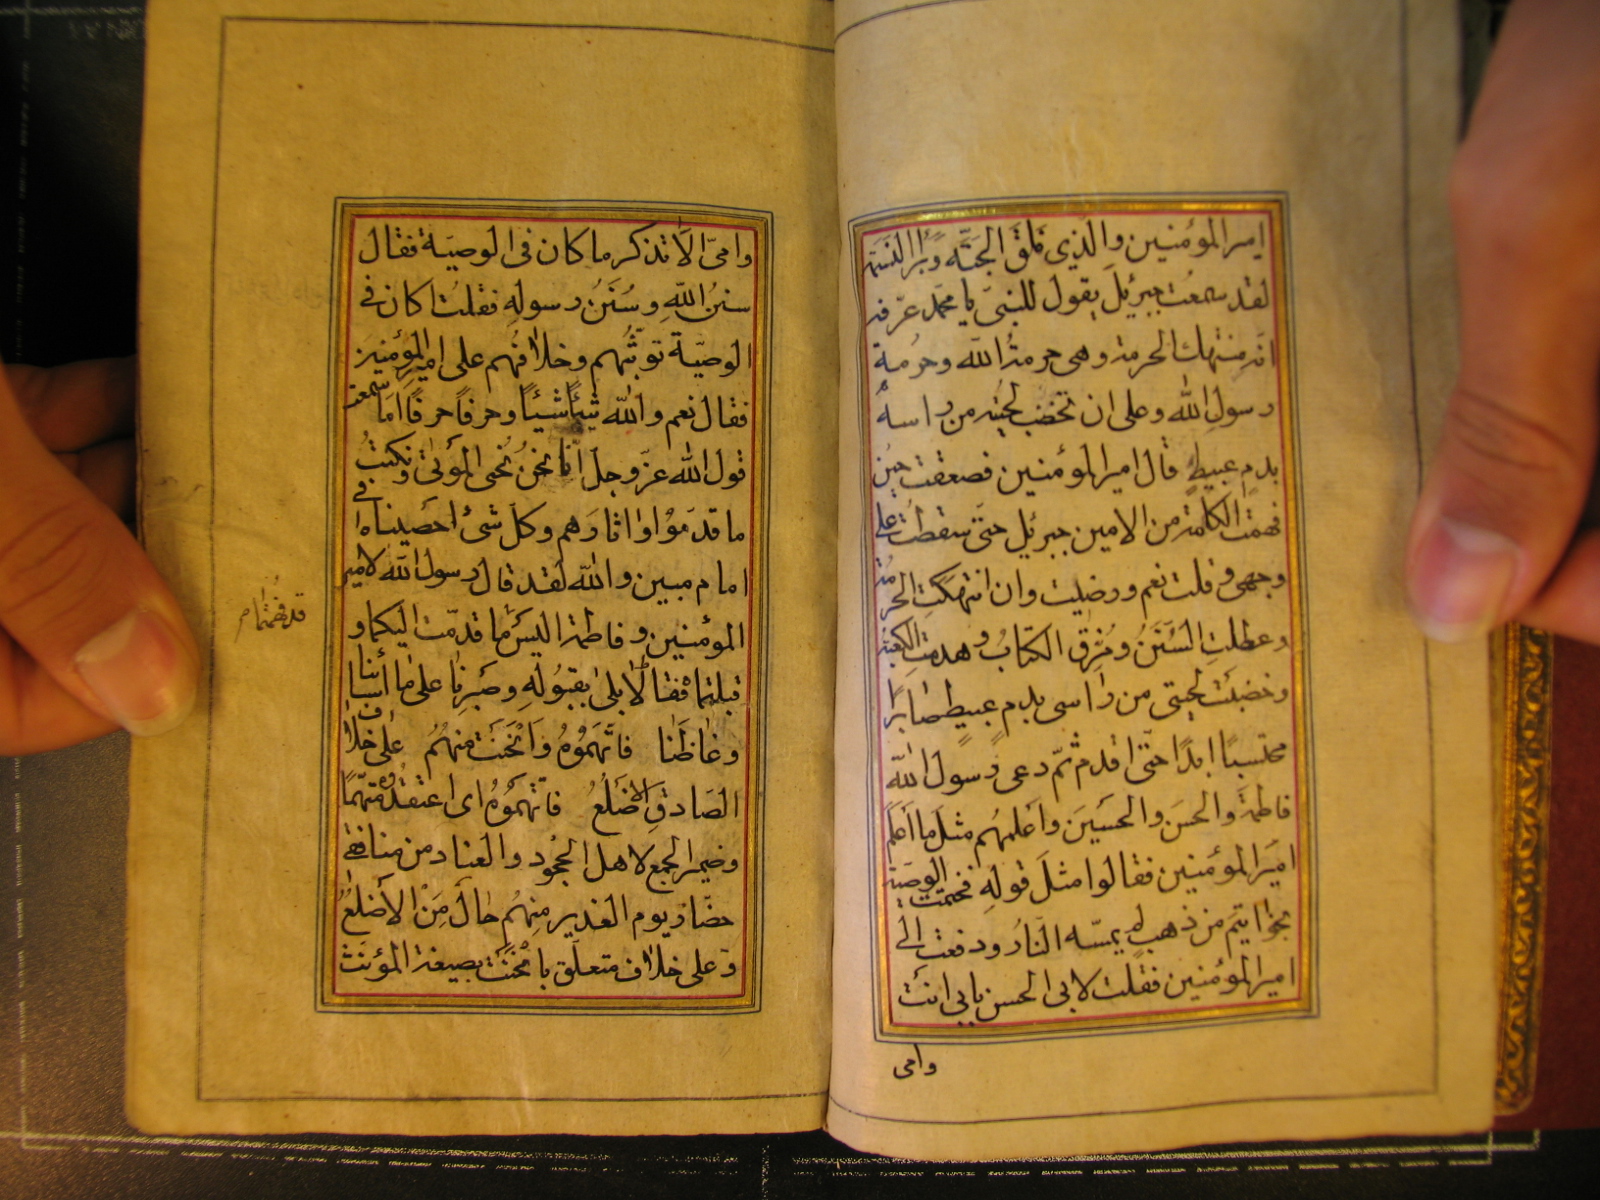 امير المؤمنين والذي فلق الجنّة وبرأ النسمة
لقد سمعت جبرئيل يقول للنبيّ يا محمّد عرّفه
انه منتهك الحرمة وهي حرمة الله وحرمة
رسول الله وعلى ان تخضب لحيته من راسه
بدم عبيط قال امير المؤمنين فصعقت حين
فهمت الكلمة من الامين جبرئيل حتّى سقطت على
وجهي وقلت نعم ورضيت وان انتهكت الحرمة
وعطلت السنن ومزق الكتاب وهدمت الكعبة
وخضبت لحيتي من راسي بدم عبيط صابرا
محتسبا ابدا حتّى اقدم ثمّ دعى رسول الله
فاطمة والحسن والحسين واعلمهم مثل ما اعلم
امير المؤمنين فقالوا مثل قوله فختمت الوصية
بخواتيم من ذهب لم يمسّه النار ودفعت الى
امير المؤمنين فقلت لابي الحسن بابي انت
وامى
وامىّ الا تذكر ما كان فى الوصيّة فقال
سنن الله وسنن رسوله فقلت اكان في
الوصيّة توثبهم وخلافهم على امير المؤمنين
فقال نعم والله شيئا شيئا وحرفا حرفا اما سمعت
قول الله عزّ وجلّ انّا نحن نحى الموتى ونكتب
ما قدموا واثارهم وكلّ شئ احصيناه في
امام مبين والله لقد قال رسول الله لامير
المؤمنين وفاطمة اليس ما قدمت اليكما و
قبلتما فقالا بلى بقبوله وصبرنا على ما أسائنا
وغاظنا فاتهموه وانخنث منهم على خلاف
الصادق الاضلع فاتهموه اى اعتقدوه متهما
وضمير الجمع لاهل الجحود والعناد من منافقى
حضّار يوم الغدير منهم حال من الاضلع
وعلى خلاف متعلّق بانخنث بصيغة المؤنث